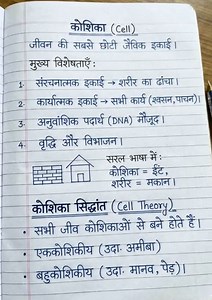 कोशिका (Cell)
जीवन की सबसे छोटी जैविक इकाई।
मुख्य विशेषताएँ:
1. संरचनात्मक इकाई → शरीर का ढांचा।
2. कार्यात्मक इकाई → सभी कार्य (श्वसन,पाचन)।
3. अनुवांशिक पदार्थ (DNA) मौजूद।
4. वृद्धि और विभाजन।
सरल भाषा में:
कोशिका = ईंट,
शरीर = मकान।
कोशिका सिद्धांत (Cell Theory)
• सभी जीव कोशिकाओं से बने होते हैं।
• एककोशिकीय (उदा. अमीबा)
• बहुकोशिकीय (उदा. मानव, पेड़)।